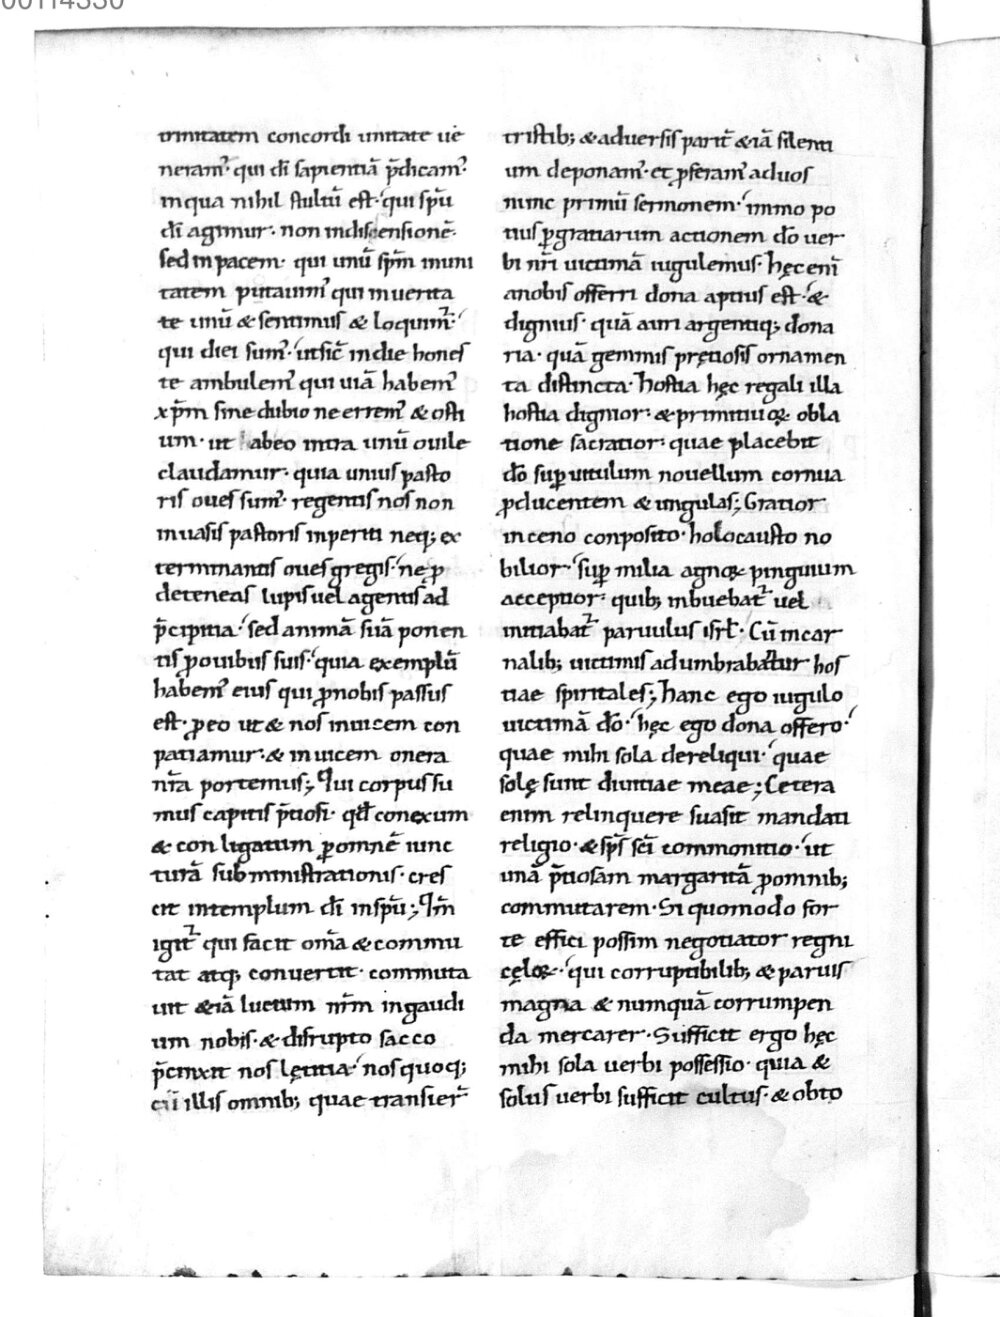 00114330
trinitatem concordi unitate ue
neram᷑· qui dī sapientiā p̄dicam᷑·
inqua nihil stultū est· qui spū
dī agimur· non indiscensionē·
sed in pacem· qui unū spm̄ inuni
tatem putauim᷑ qui inuerita
te unū & sentimus & loquim᷑·
qui diei sum᷑· ut sic̄ in die hones
te ambulem᷑ qui uiā habem᷑
xp̄m sine dubio ne errem᷑ & osti
um· ut habeo intra unū ouile
claudamur· quia unius pasto
ris oues sum᷑· regentis nos non
inuasis pastoris inperiti neq; ex
terminantis oues gregis· ne ꝓ
deteneas lupis uel agentis ad
p̄cipitia· sed animā suā ponen
tis ꝓouibus suis· quia exemplū
habem᷑ eius qui ꝓnobis passus
est· ꝓeo ut & nos inuicem con
patiamur· & inuicem onera
nr̄a portemus; Qui corpus su
mus capitis p̄tiosi· qđ conexum
& conligatum ꝑomnē iunc
turā subministrationis· cres
cit intemplum dī inspū; Im̄
igit᷑ qui facit om̄a & commu
tat atq; conuertit· commuta
uit &iā luctum nr̄m ingaudi
um nobis· & disrupto sacco
p̄cinxit nos lętitia· nos quoq;
cū illis omnib; quae transier᷑
tristib; & aduersis parit̄ &iā silenti
um deponam᷑· et ꝓferam᷑ aduos
nunc primū sermonem· immo po
tius ꝑgratiarum actionem dō uer
bi nr̄i uictimā iugulemus· hęc enī
anobis offerri dona aptius est· &
dignius· quā auri argentiq; dona
ria· quā gemmis prętiosis ornamen
ta distincta· hostia hęc regali illa
hostia dignior· & primitiuoꝝ obla
tione sacratior· quae placebit
dō suꝑ uitulum nouellum cornua
ꝓducentem & ungulas; Gratior
inceno conposito· holocausto no
bilior· suꝑ milia agnoꝝ pinguium
acceptior· quib; inbuebat᷑ uel
initiabat᷑ paruulus isrł· Cū incar
nalib; uictimis adumbrabatur hos
tiae spiritales; hanc ego iugulo
uictimā dō· hęc ego dona offero·
quae mihi sola dereliqui· quae
solę sunt diuitiae meae; Cetera
enim relinquere suasit mandati
religio· & sp̄s sc̄i commonitio· ut
unā p̄tiosam margaritā ꝓomnib;
commutarem· Si quomodo for
te effici possim negotiator regni
cęloꝝ· qui corruptibilib; & paruis
magna & numquā corrumpen
da mercarer· Sufficit ergo hęc
mihi sola uerbi possessio· quia &
solus uerbi sufficit cultus· & obto